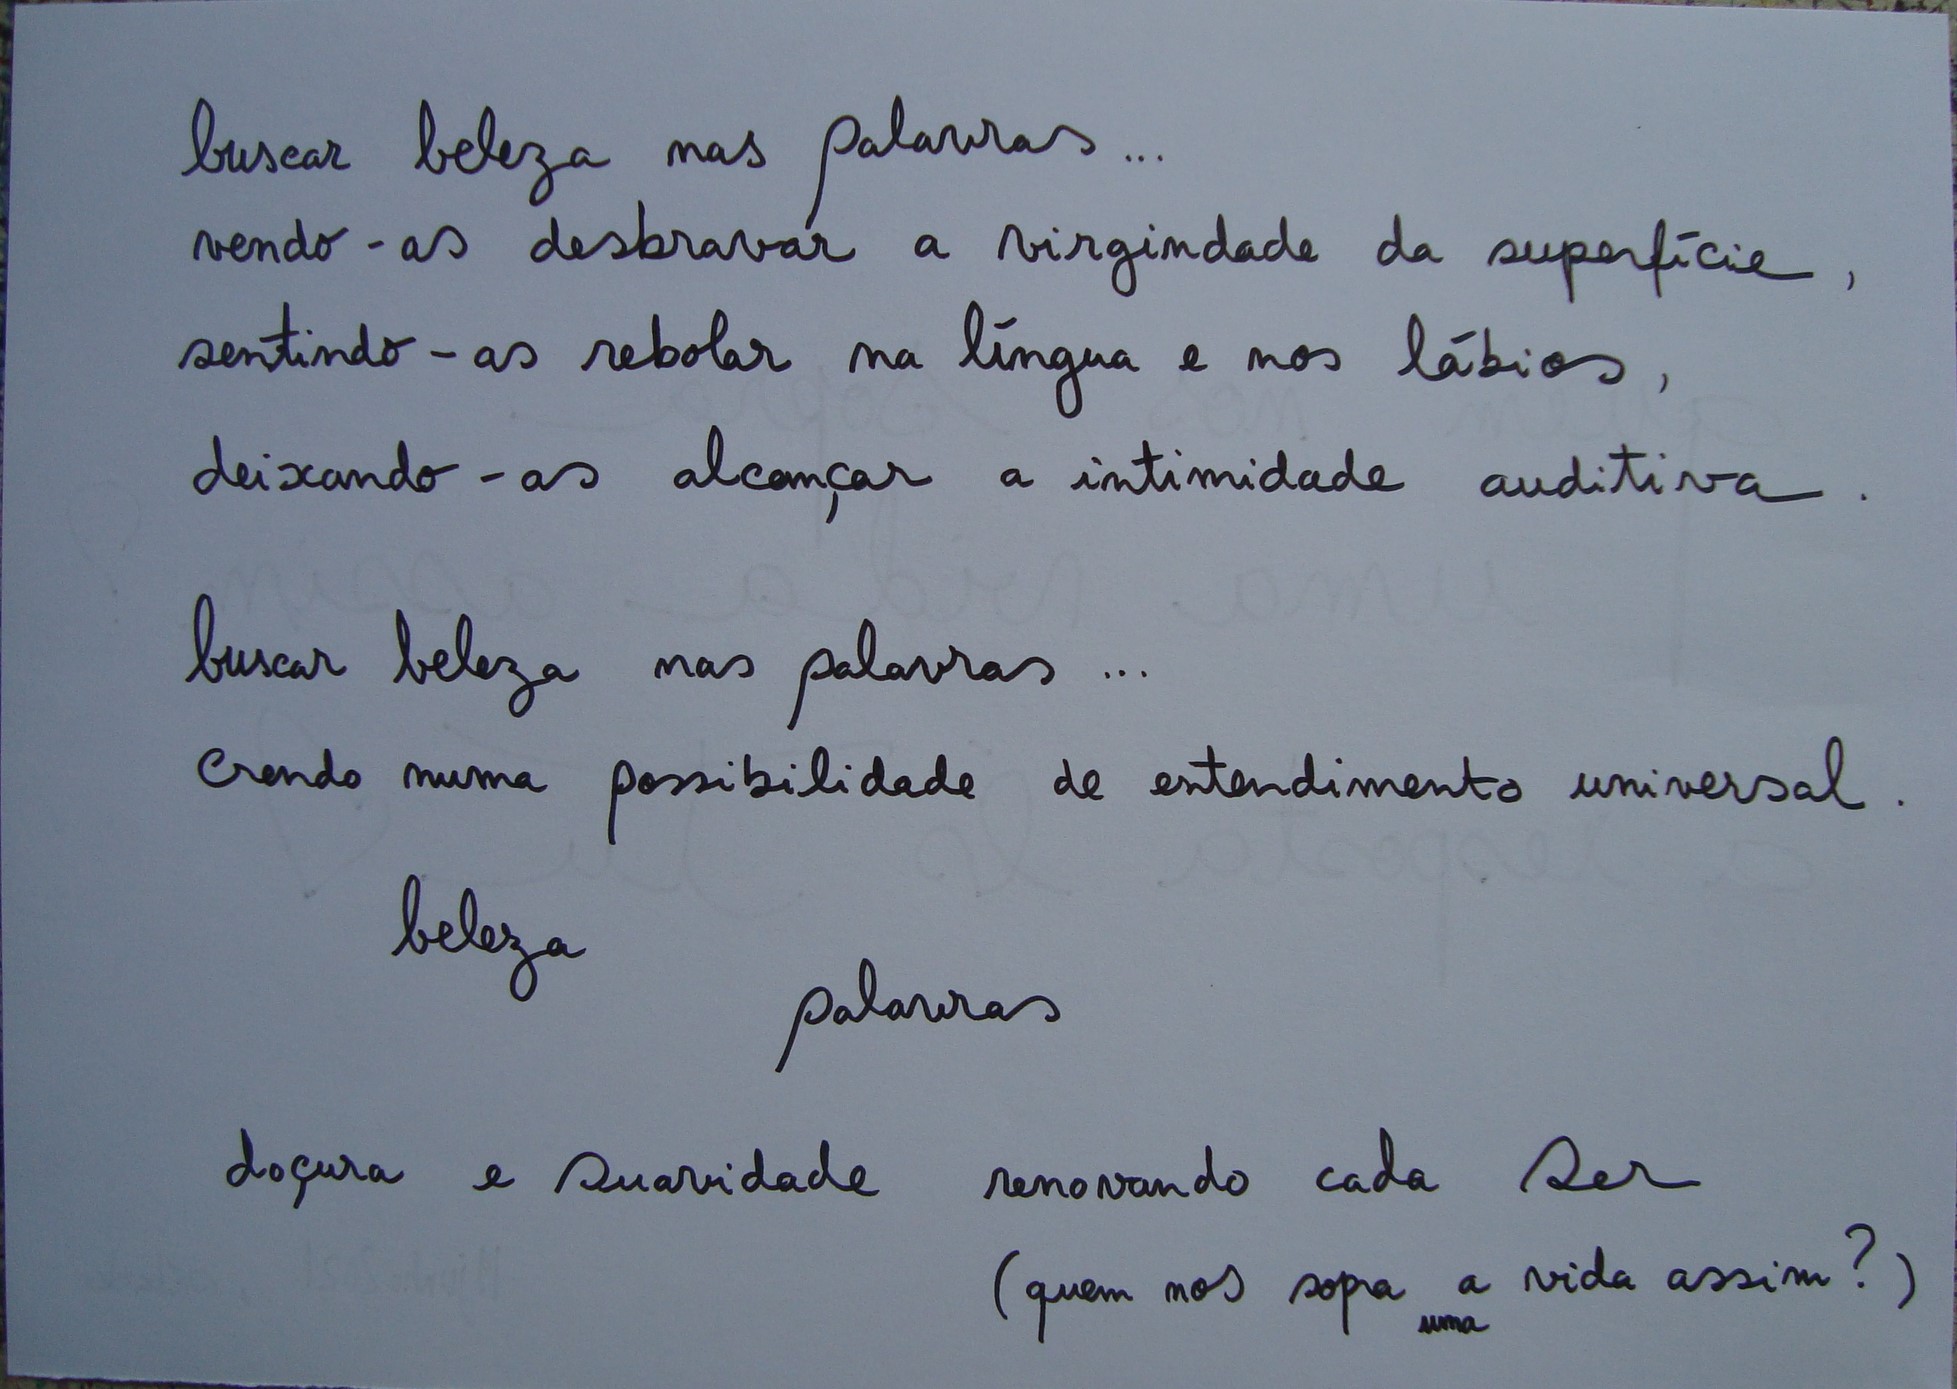 buscar beleza nas palavras...
vendo-as desbravar a virgindade da superfície,
sentindo-as rebolar na língua e nos lábios,
deixando-as alcançar a intimidade auditiva.
buscar beleza nas palavras...
crendo numa possibilidade de entendimento universal.
beleza
palavras
doçura e suavidade renovando cada Ser
(quem nos sopra a vida assim?)
uma
quem nos sopra
uma vida assim?
a resposta